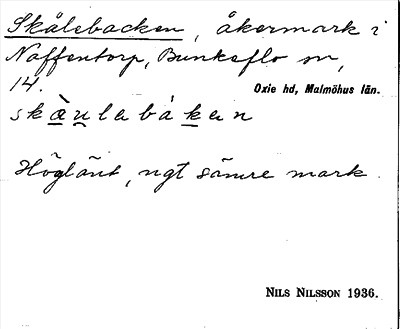 Skålebacken, åkermark i
Naffentorp, Bunkeflo sn,
14.
Oxie hd, Malmöhus län.
skæ̀u̯lebáken
Höglänt, ngt sämre mark.
NILS NILSSON 1936.